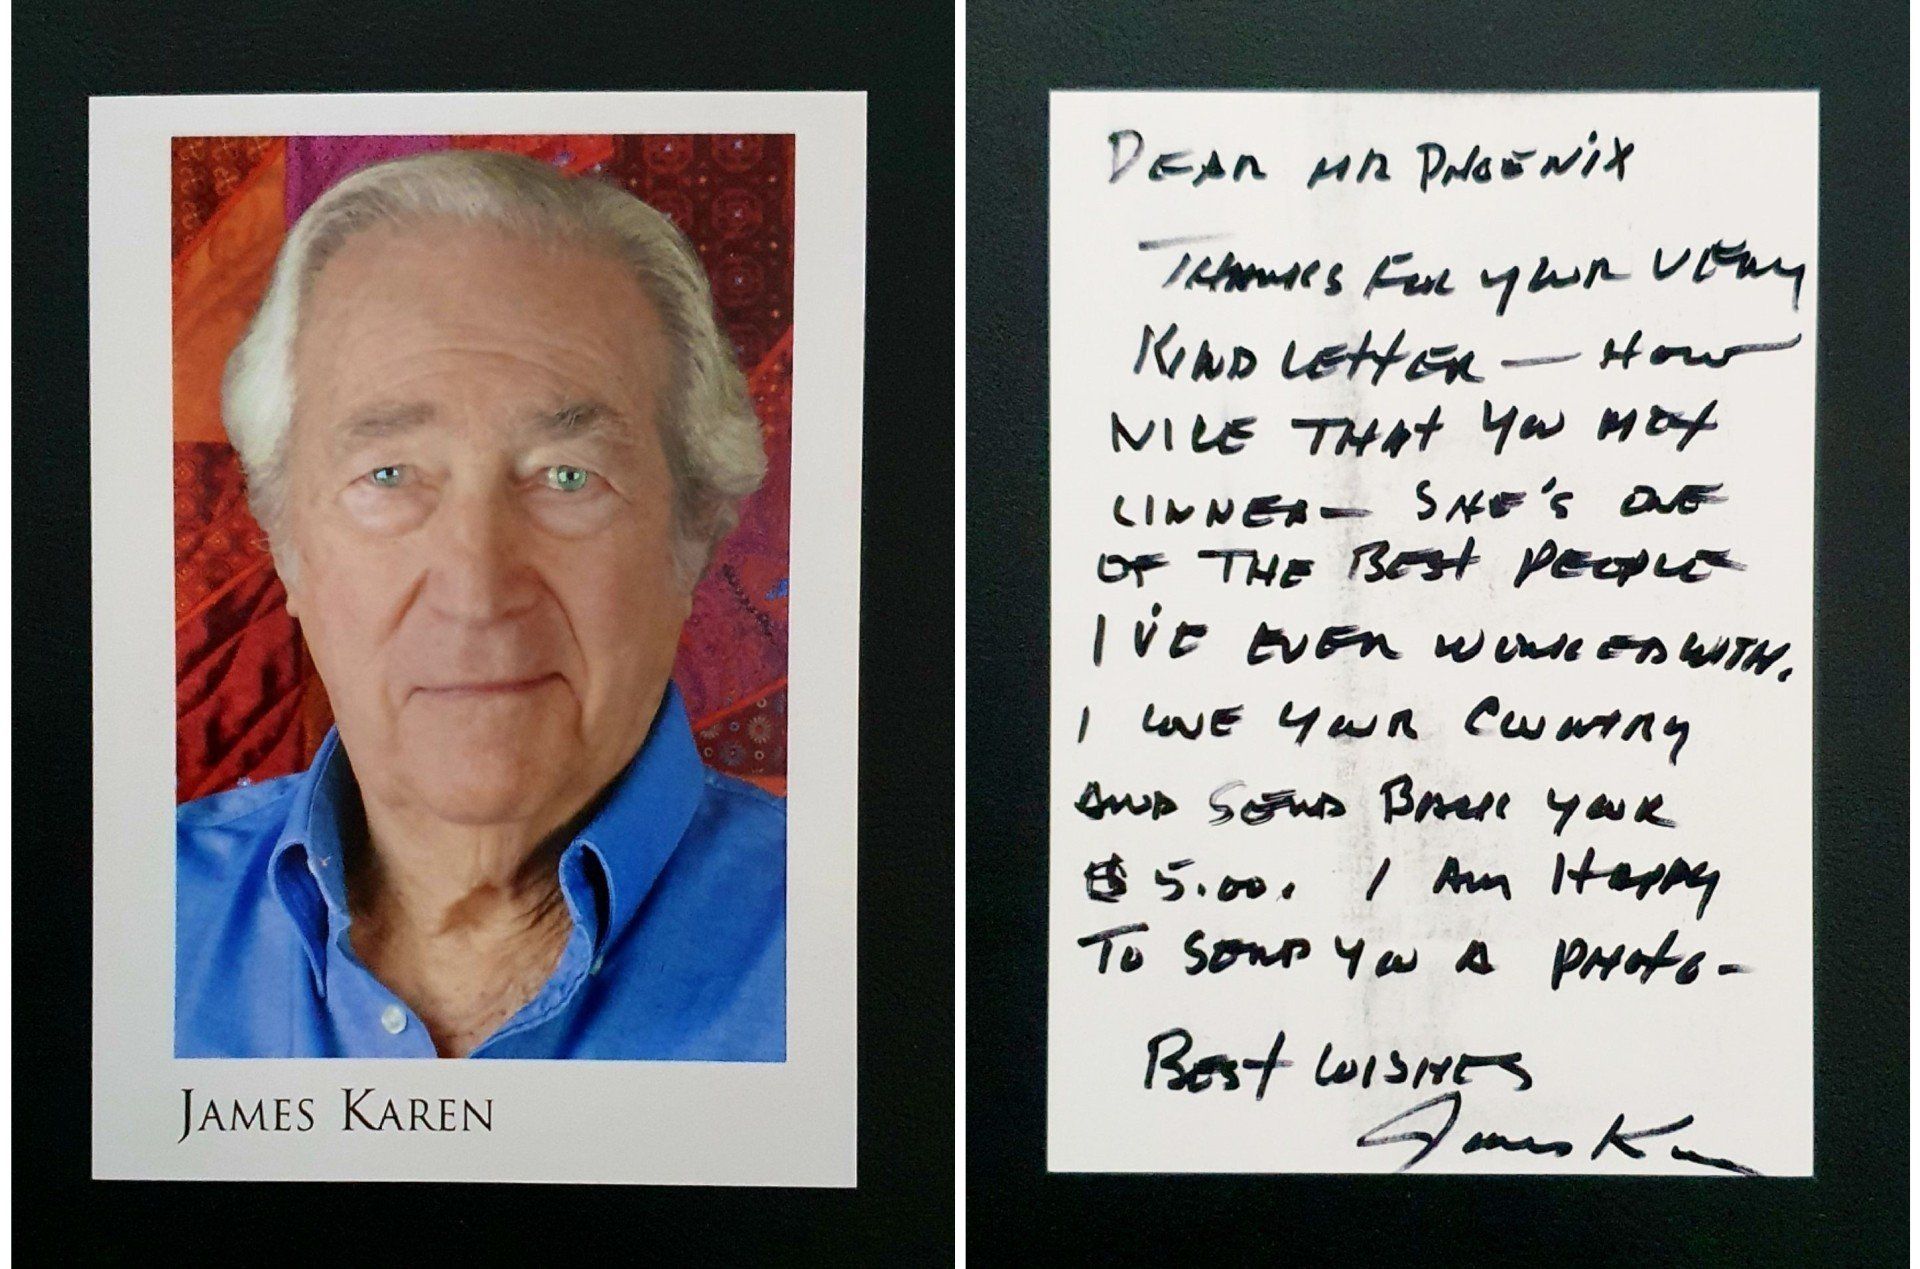 JAMES KAREN
DEAR MR PHOENIX
THANKS FOR YOUR VERY
KIND LETTER — HOW
NICE THAT YOU MET
LINNEA — SHE'S ONE
OF THE BEST PEOPLE
I'VE EVER WORKED WITH.
I LOVE YOUR COUNTRY
AND SEND BACK YOUR
$5.00. I AM HAPPY
TO SEND YOU A PHOTO -
BEST WISHES
James Karen